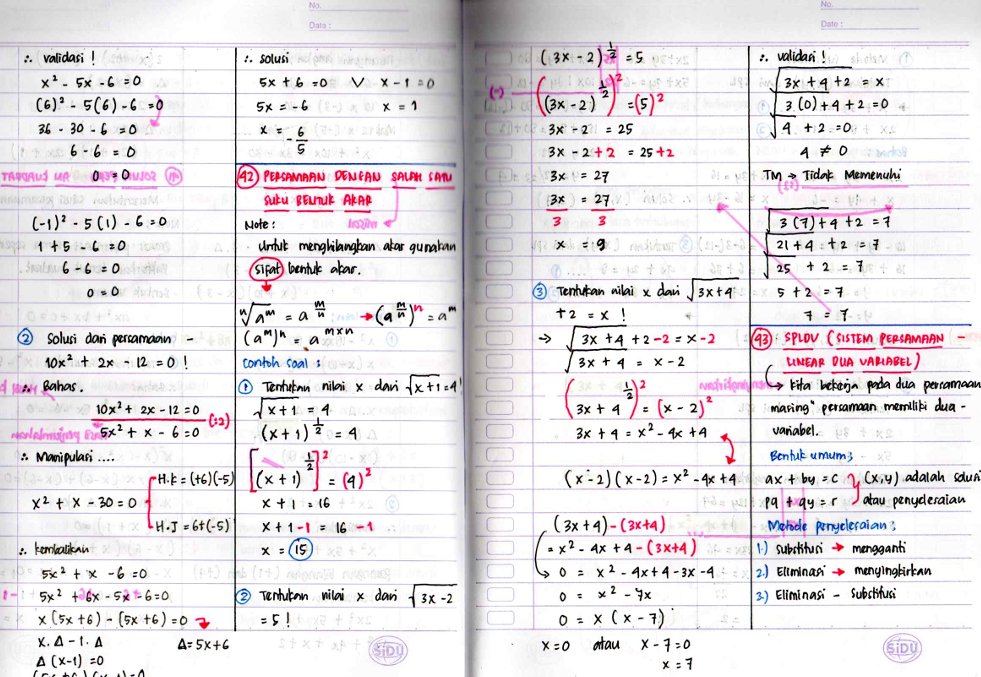 No.
Date :
∴ validasi !
x² - 5x - 6 = 0
(6)² - 5(6) - 6 = 0
36 - 30 - 6 = 0
6 - 6 = 0
0 = 0
(-1)² - 5(1) - 6 = 0
1 + 5 - 6 = 0
6 - 6 = 0
0 = 0
② Solusi dari persamaan -
10x² + 2x - 12 = 0 !
∴ Bahas.
10x² + 2x - 12 = 0
5x² + x - 6 = 0 (:2)
∴ Manipulasi ....
H.k = (+6)(-5)
x² + x - 30 = 0
H.J = 6+(-5)
∴ kembalikan
5x² + x - 6 = 0
5x² + 6x - 5x - 6 = 0
x (5x + 6) - (5x + 6) = 0
x. Δ - 1. Δ Δ = 5x + 6
Δ (x-1) = 0
(5x+6)(x-1)=0
∴ solusi
5x + 6 = 0 V x - 1 = 0
5x = -6 x = 1
x = -6/5
42 PERSAMAAN DENGAN SALAH SATU
SUKU BENTUK AKAR
Note :
Untuk menghilangkan akar gunakan
sifat bentuk akar.
ⁿ√aᵐ = a^(m/n) → (a^(m/n))ⁿ = aᵐ
(aᵐ)ⁿ = a^(m×n)
contoh soal :
① Tentukan nilai x dari √x+1 = 4!
√x+1 = 4
(x+1)^(1/2) = 4
[(x+1)^(1/2)]² = (4)²
x + 1 = 16
x + 1 - 1 = 16 - 1
x = 15
② Tentukan nilai x dari √3x-2
= 5 !
SiDU
No.
Date :
(3x - 2)^(1/2) = 5
((3x - 2)^(1/2))² = (5)²
3x - 2 = 25
3x - 2 + 2 = 25 + 2
3x = 27
3x/3 = 27/3
x = 9
③ Tentukan nilai x dari √3x+4
+2 = x !
→ √3x + 4 + 2 - 2 = x - 2
√3x + 4 = x - 2
(3x + 4^(1/2))² = (x - 2)²
3x + 4 = x² - 4x + 4
(x-2)(x-2) = x² - 4x + 4
(3x + 4) - (3x+4)
= x² - 4x + 4 - (3x+4)
0 = x² - 4x + 4 - 3x - 4
0 = x² - 7x
0 = x (x - 7)
x = 0 atau x - 7 = 0
x = 7
∴ validasi !
√3x + 4 + 2 = x
√3.(0) + 4 + 2 = 0
√4 + 2 = 0
4 ≠ 0
TM → Tidak Memenuhi
√3(7) + 4 + 2 = 7
√21 + 4 + 2 = 7
√25 + 2 = 7
5 + 2 = 7
7 = 7
43 SPLDV (SISTEM PERSAMAAN -
LINEAR DUA VARIABEL)
↳ kita bekerja pada dua persamaan
masing" persamaan memiliki dua -
variabel.
Bentuk umum :
ax + by = c } (x,y) adalah solusi
px + qy = r atau penyelesaian
Metode penyelesaian :
1.) Substitusi → mengganti
2.) Eliminasi → menyingkirkan
3.) Eliminasi - Substitusi
SiDU